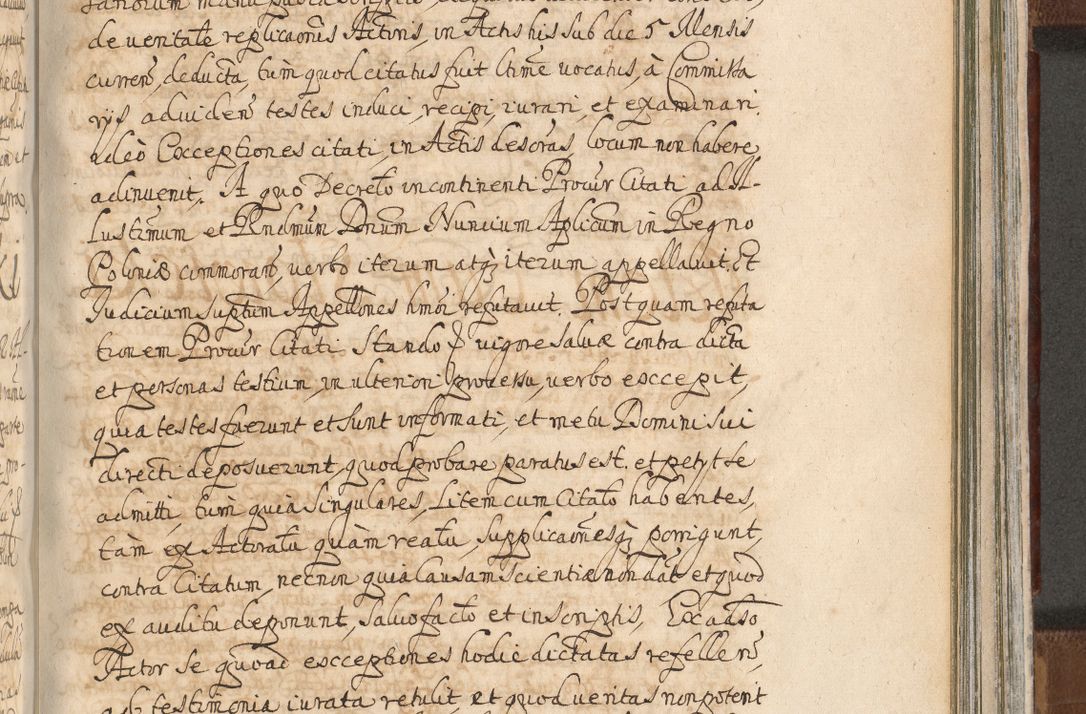 de veritate replicaonis Actoris, in Actis his sub die 5 Mensis
curren, deducta, tum quod citatus fuit ltime vocatus, à Commissa
rys ad viden testes induci, recipi, iurari, et examinari.
adeò Excceptiones citati, in Actis descras, locum non habere
adinvenit. A quo Decreto incontinenti Procur Citati ad Il-
lustrmum et Rndmum Dnum Nuncium Aplicum in Regno
Poloniæ commoran, verbo iterum atq iterum appellavit. Et
Judicium suptum Appellones hmoi refutavit. Post quam refuta
tionem Procur Citati Stando vigore salvæ contra dicta
et personas testium, in ulteriori processu, verbo exccepit,
quia testes fuerunt et sunt informati, et metu Domini sui
directi deposuerunt, quod probare paratus est. et petyt se
admitti, tum quia singulares, Litem cum Citato habentes,
tàm ex Actoratu quàm reatu, supplicaonesq porrigunt,
contra Citatum, necnon quia Causam scientiæ non dat et quod
ex auditu deponunt, salvo facto et inscriptis, Ex adso
Actor se quoad excceptiones hodie dictatas refellen,
ad testimonia iurata retulit et quod veritas non potent